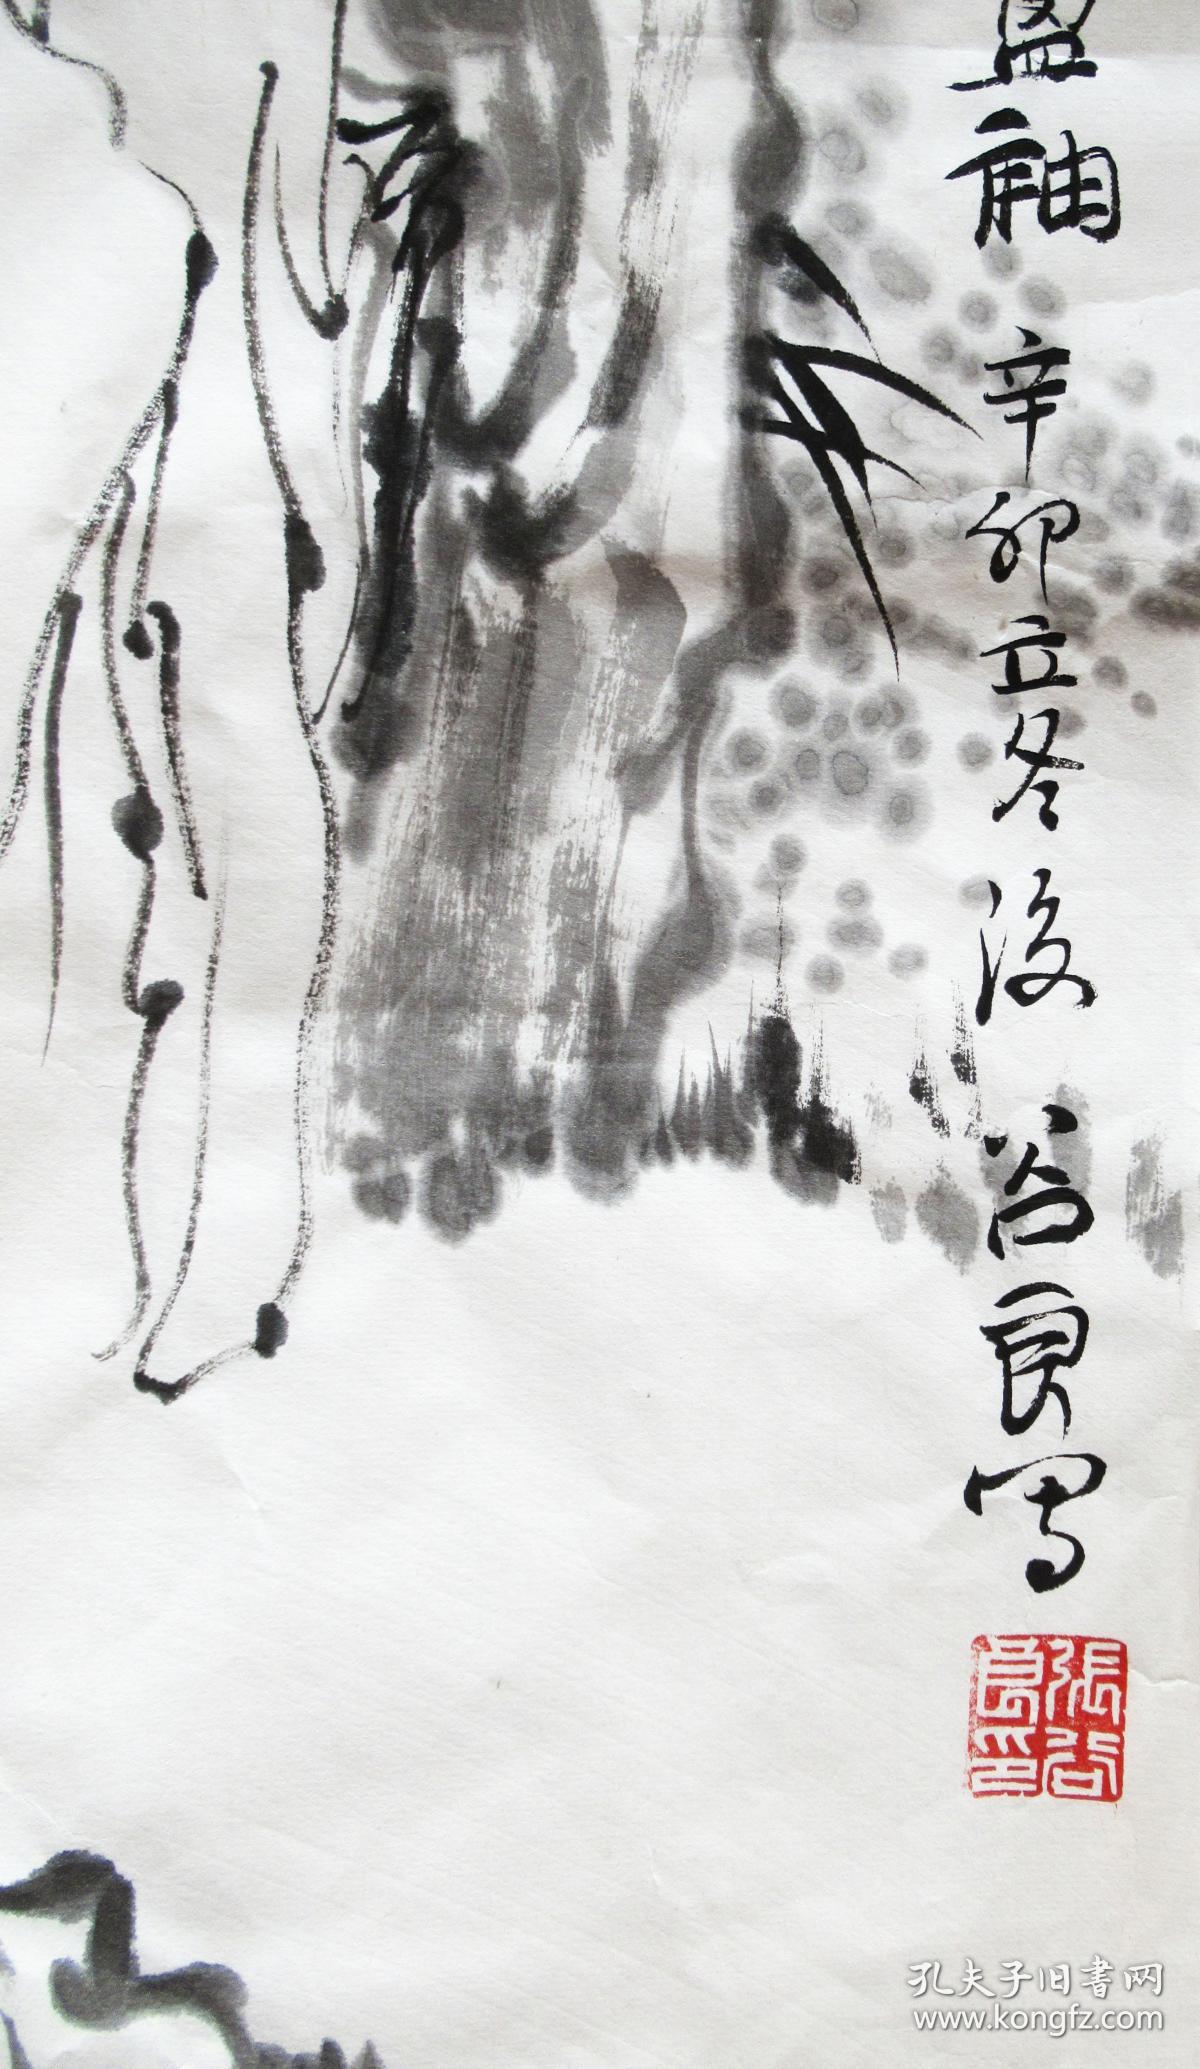 盈袖 辛卯立冬後 谷良写
張谷
良印
孔夫子旧書网
www.kongfz.com